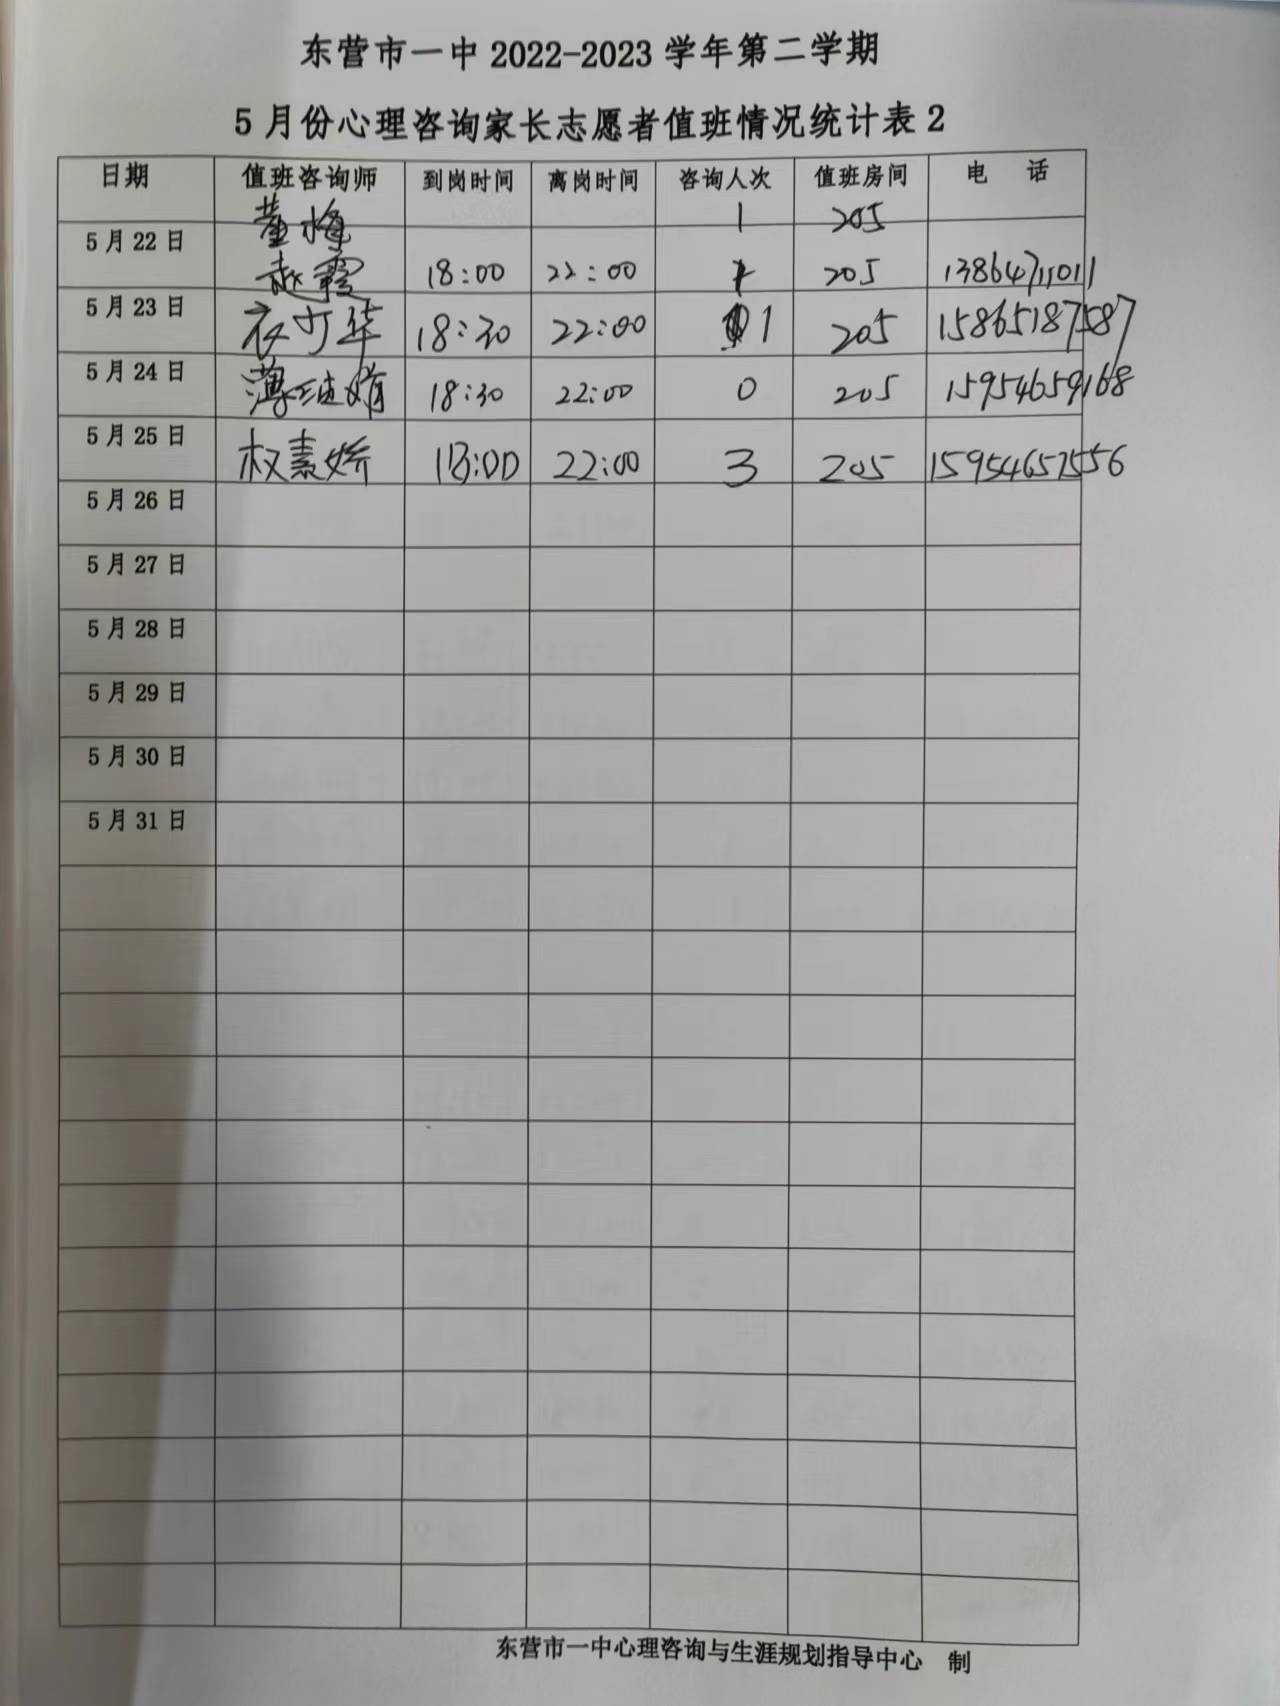 东营市一中 2022-2023 学年第二学期
5 月份心理咨询家长志愿者值班情况统计表 2
日期 值班咨询师 到岗时间 离岗时间 咨询人次 值班房间 电 话
董梅 1 205
5 月 22 日 赵霞 18:00 22:00 1 205 13864711011
5 月 23 日 衣可华 18:30 22:00 1 205 15865187587
5 月 24 日 薄继娟 18:30 22:00 0 205 15954659168
5 月 25 日 权素娇 18:00 22:00 3 205 15954657556
5 月 26 日
5 月 27 日
5 月 28 日
5 月 29 日
5 月 30 日
5 月 31 日
东营市一中心理咨询与生涯规划指导中心 制